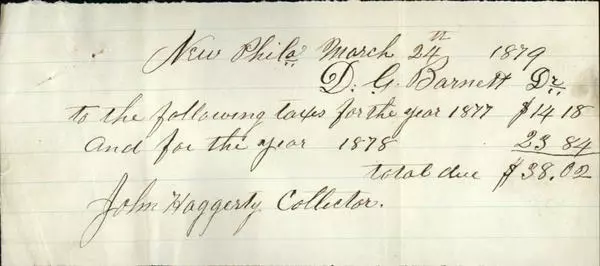 New Phila March 24th 1879
D. G. Barnett Dr
to the following taxes for the year 1877 $14 18
And for the year 1878 23 84
total due $38.02
John Haggerty Collector.